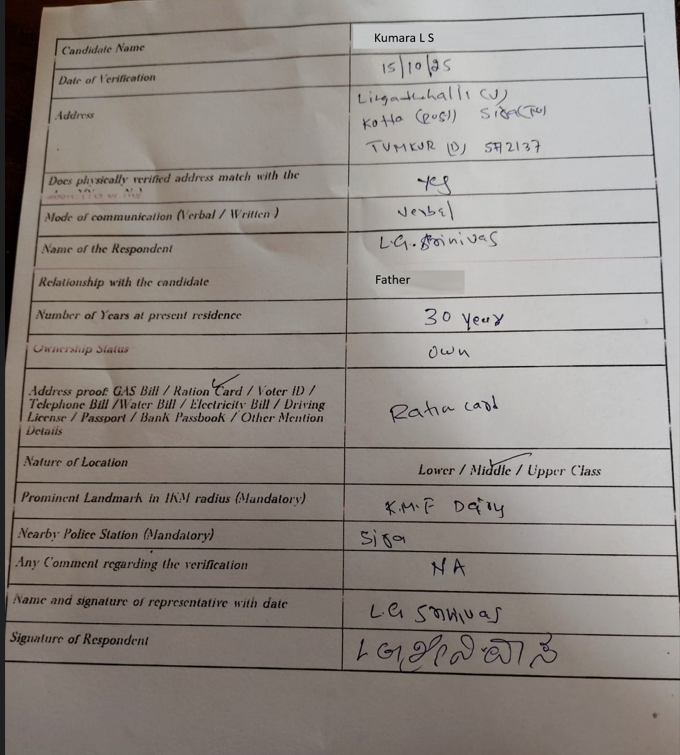 Candidate Name Kumara L S
Date of Verification 15/10/25
Address
Kotta (post) Sira(TQ)
TUMKUR (D) 572137
Does physically verified address match with the yes
Mode of communication (Verbal / Written ) verbal
Name of the Respondent L.G. Srinivas
Relationship with the candidate Father
Number of Years at present residence 30 year
Ownership Status own
Address proof: GAS Bill / Ration Card / Voter ID /
Telephone Bill /Water Bill / Electricity Bill / Driving
License / Passport / Bank Passbook / Other Mention
Details
Ration card
Nature of Location Lower / Middle / Upper Class
Prominent Landmark in 1KM radius (Mandatory) K.M.F Dairy
Nearby Police Station (Mandatory) Sira
Any Comment regarding the verification NA
Name and signature of representative with date L.G Srinivas
Signature of Respondent L G ಶ್ರೀನಿವಾಸ